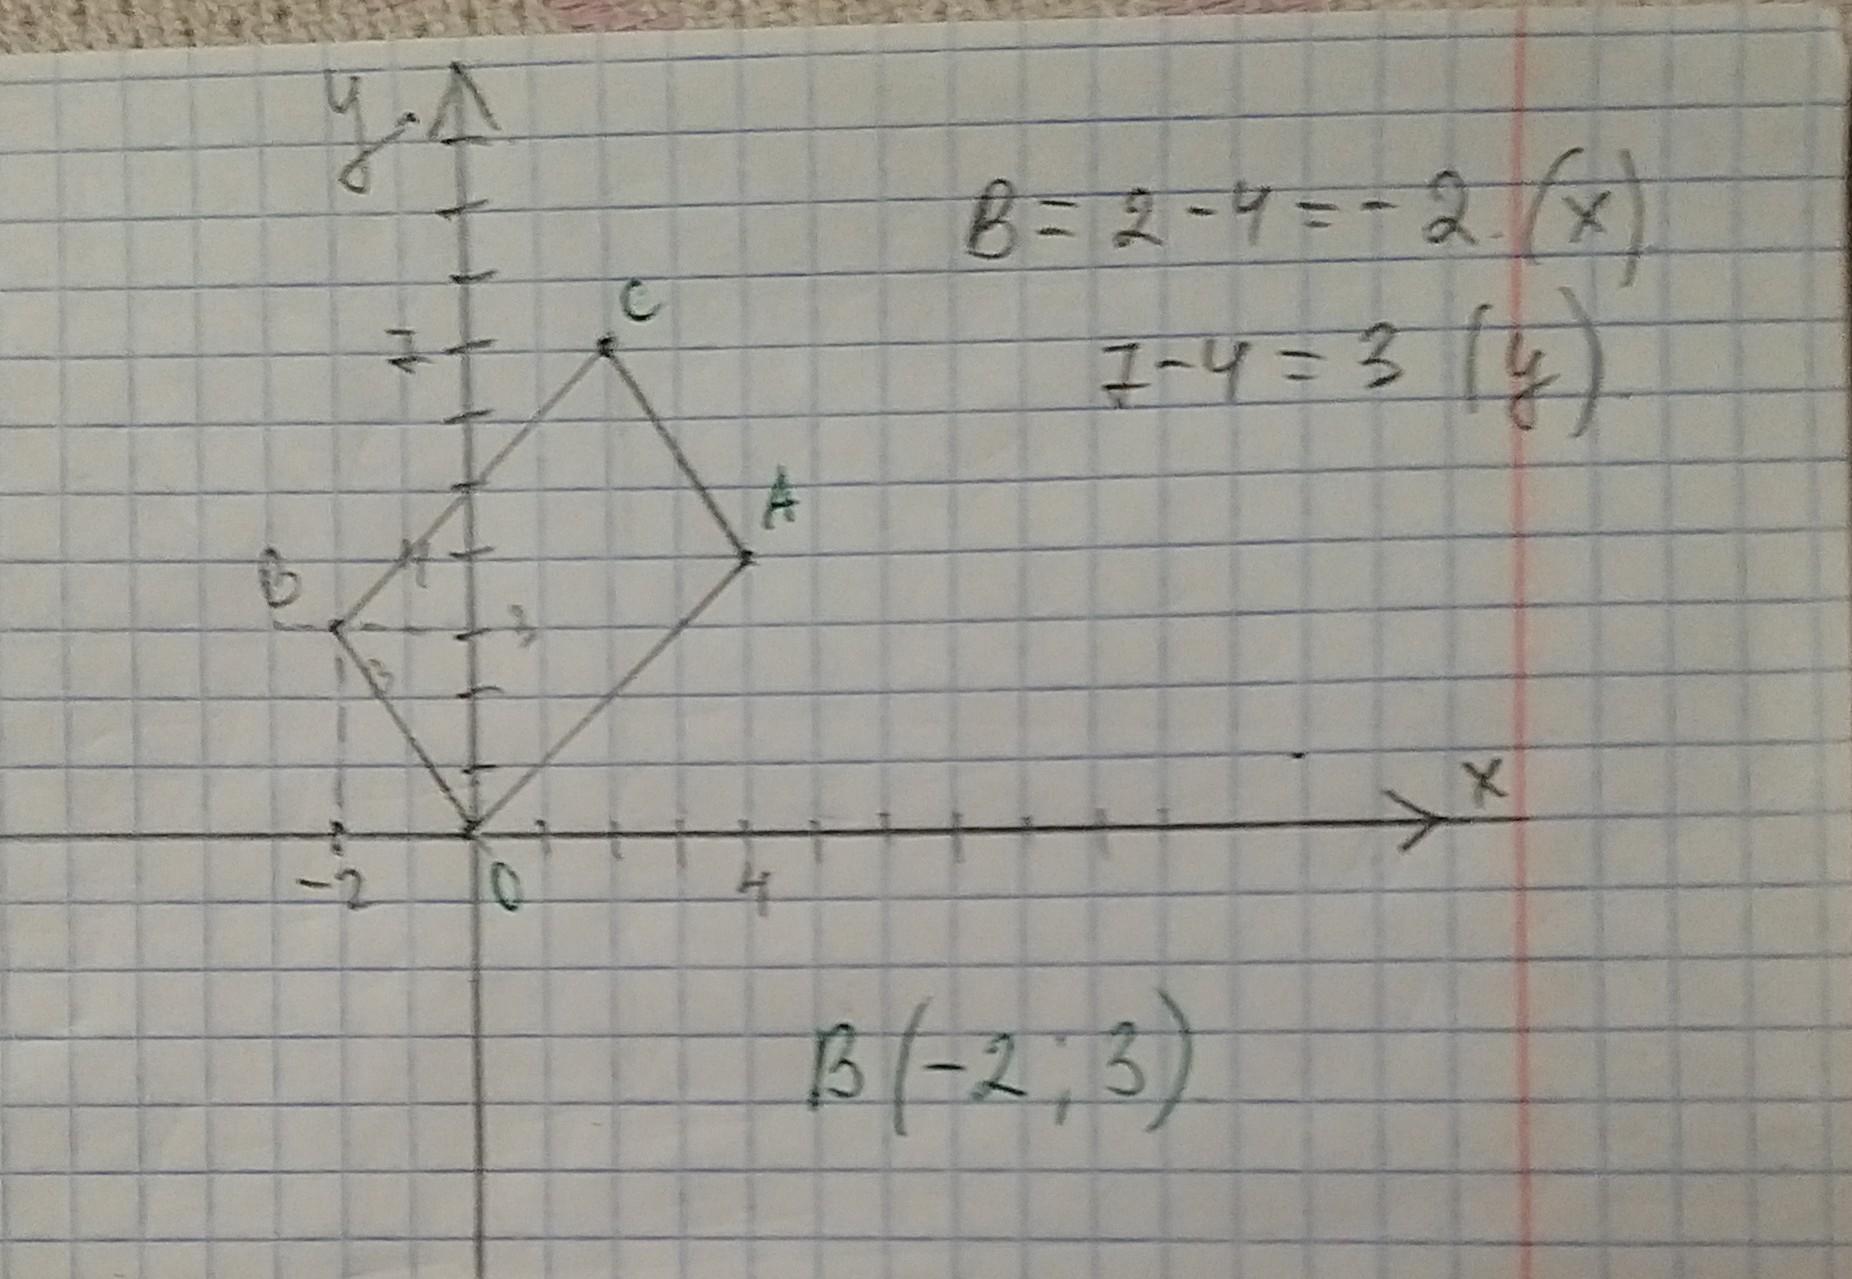 y
B = 2 - 4 = - 2. (x)
C
7
7 - 4 = 3 (y)
A
B
4
3
3
x
-2
O
4
B(-2; 3)